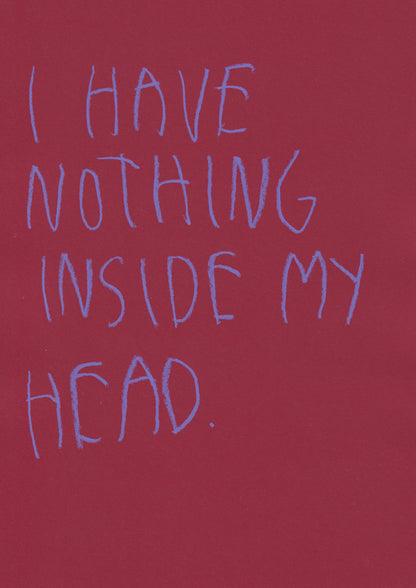 I HAVE
NOTHING
INSIDE MY
HEAD.